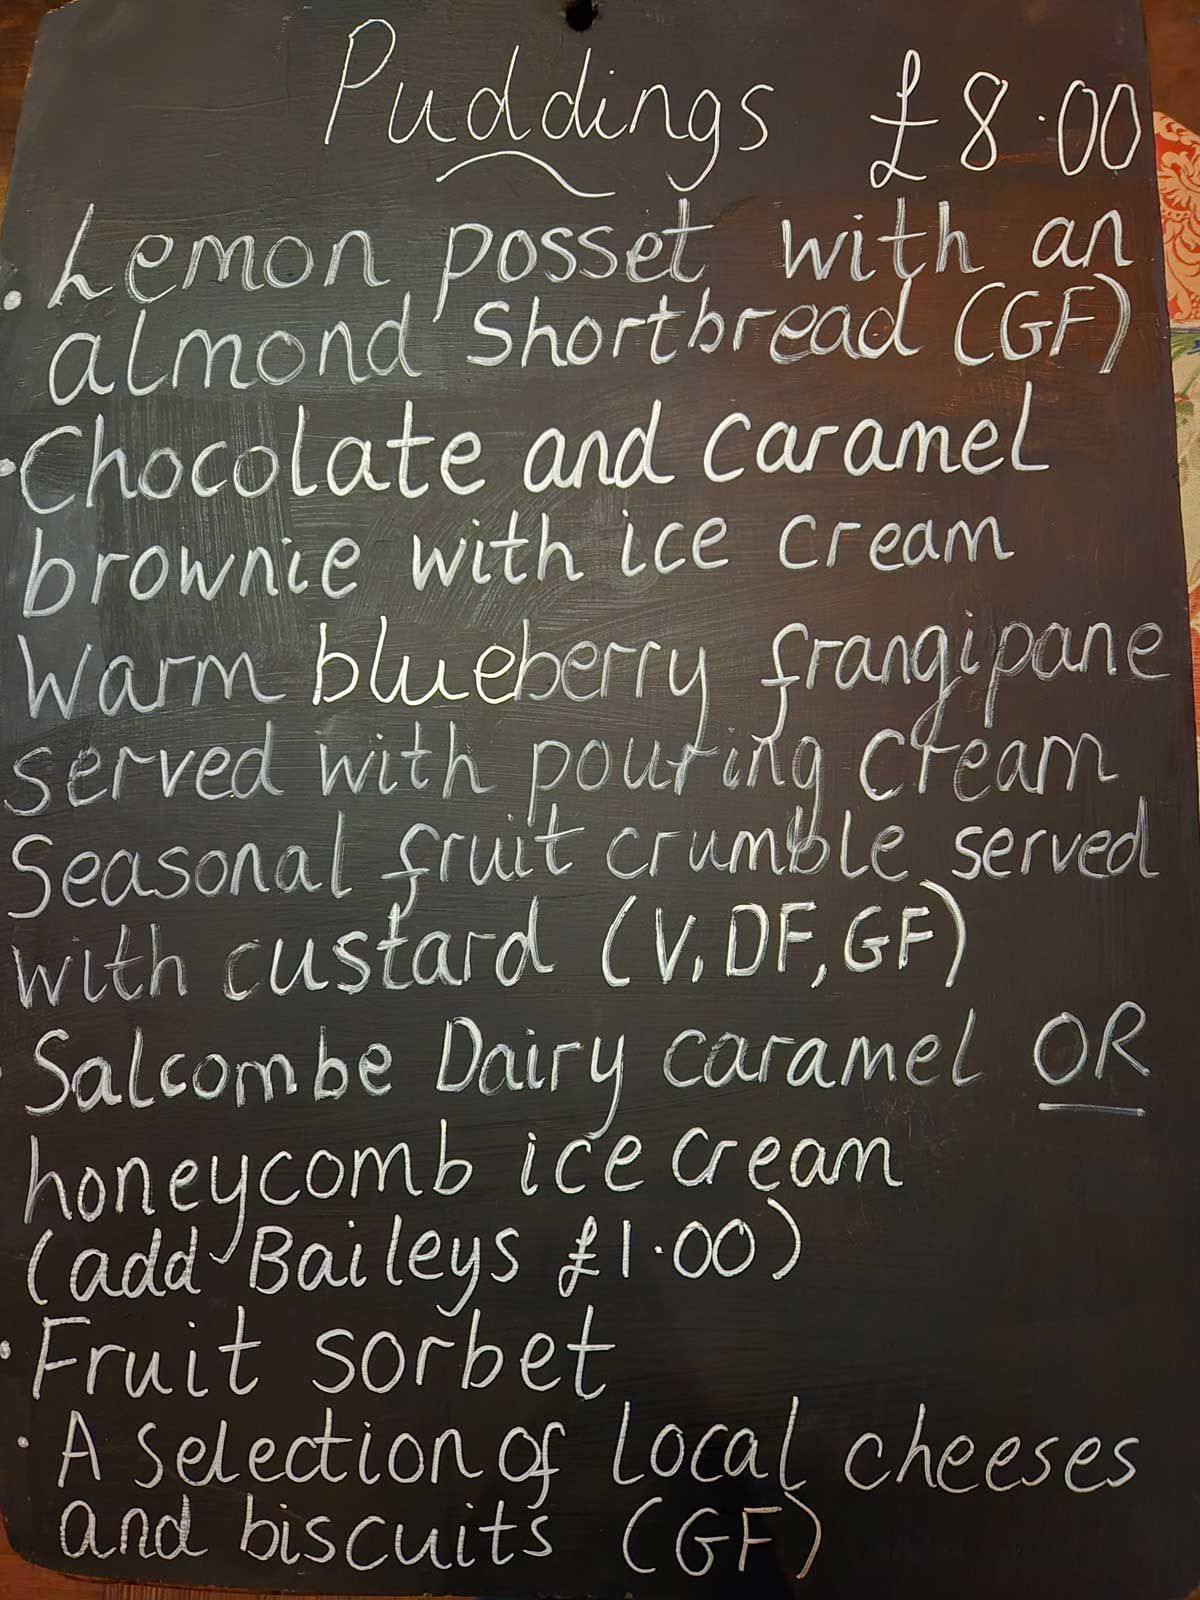 Puddings £8.00
• Lemon posset with an
almond Shortbread (GF)
• Chocolate and caramel
brownie with ice cream
Warm blueberry frangipane
served with pouring cream
Seasonal fruit crumble served
with custard (V, DF, GF)
Salcombe Dairy caramel OR
honeycomb ice cream
(add Baileys £1.00)
• Fruit sorbet
• A selection of local cheeses
and biscuits (GF)